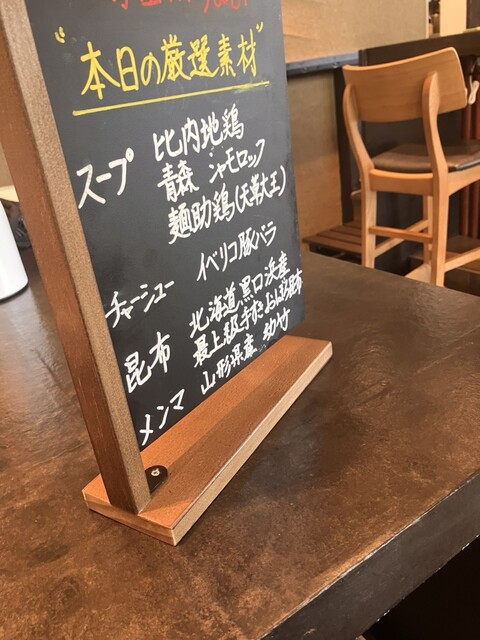 "本日の厳選素材"
スープ 比内地鶏
青森 シャモロック
麺助鶏(天草大王)
チャーシュー イベリコ豚バラ
昆布 北海道黒口浜産
最上級手すきおぼろ昆布
メンマ 山形県産 幼竹